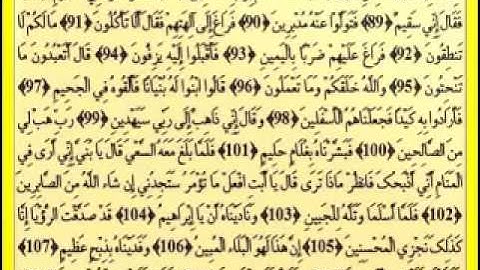 فَقَالَ إِنِّي سَقِيمٌ ﴿89﴾ فَتَوَلَّوْا عَنْهُ مُدْبِرِينَ ﴿90﴾ فَرَاغَ إِلَى آلِهَتِهِمْ فَقَالَ أَلَا تَأْكُلُونَ ﴿91﴾ مَا لَكُمْ لَا
تَنطِقُونَ ﴿92﴾ فَرَاغَ عَلَيْهِمْ ضَرْبًا بِالْيَمِينِ ﴿93﴾ فَأَقْبَلُوا إِلَيْهِ يَزِفُّونَ ﴿94﴾ قَالَ أَتَعْبُدُونَ مَا
تَنْحِتُونَ ﴿95﴾ وَاللَّهُ خَلَقَكُمْ وَمَا تَعْمَلُونَ ﴿96﴾ قَالُوا ابْنُوا لَهُ بُنْيَانًا فَأَلْقُوهُ فِي الْجَحِيمِ ﴿97﴾
فَأَرَادُوا بِهِ كَيْدًا فَجَعَلْنَاهُمُ الْأَسْفَلِينَ ﴿98﴾ وَقَالَ إِنِّي ذَاهِبٌ إِلَى رَبِّي سَيَهْدِينِ ﴿99﴾ رَبِّ هَبْ لِي
مِنَ الصَّالِحِينَ ﴿100﴾ فَبَشَّرْنَاهُ بِغُلَامٍ حَلِيمٍ ﴿101﴾ فَلَمَّا بَلَغَ مَعَهُ السَّعْيَ قَالَ يَا بُنَيَّ إِنِّي أَرَى فِي
الْمَنَامِ أَنِّي أَذْبَحُكَ فَانظُرْ مَاذَا تَرَى قَالَ يَا أَبَتِ افْعَلْ مَا تُؤْمَرُ سَتَجِدُنِي إِن شَاءَ اللَّهُ مِنَ الصَّابِرِينَ
﴿102﴾ فَلَمَّا أَسْلَمَا وَتَلَّهُ لِلْجَبِينِ ﴿103﴾ وَنَادَيْنَاهُ أَنْ يَا إِبْرَاهِيمُ ﴿104﴾ قَدْ صَدَّقْتَ الرُّؤْيَا إِنَّا
كَذَلِكَ نَجْزِي الْمُحْسِنِينَ ﴿105﴾ إِنَّ هَذَا لَهُوَ الْبَلَاءُ الْمُبِينُ ﴿106﴾ وَفَدَيْنَاهُ بِذِبْحٍ عَظِيمٍ ﴿107﴾